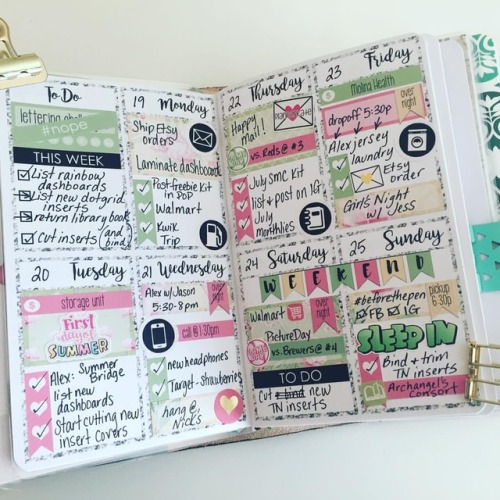 To Do
lettering
#nope
THIS WEEK
List rainbow
dashboards
List new dotgrid
inserts
return library book
Cut inserts (and
bind)
19 Monday
Ship Etsy
orders
Laminate dashboards
Post freebie kit
in POP
Walmart
Kwik
Trip
20 Tuesday
$ storage unit
First
day of
SUMMER
Alex: Summer
Bridge
list new
dashboards
Start cutting new
insert covers
21 Wednesday
Alex w/Jason
5:30-8pm
over
night
call @ 1:30pm
new headphones
Target - Strawberries
hang @
Nick's
22 Thursday
Happy
mail!
vs. Reds @ #3
July SMC Kit
list & post on IG
July
monthlies
23 Friday
Molina Health
$
dropoff 5:30p
over
night
Alex, jersey
laundry
Etsy
order
Girls Night
w/ Jess
24 Saturday
25 Sunday
WEEKEND
Walmart
over
night
Picture Day
vs. Brewers @ #4
TO DO
Cut bind new
TN inserts
#beforethepen
FB IG
pickup
6:30p
SLEEP IN
Bind + trim
TN inserts
Archangel's
Consort